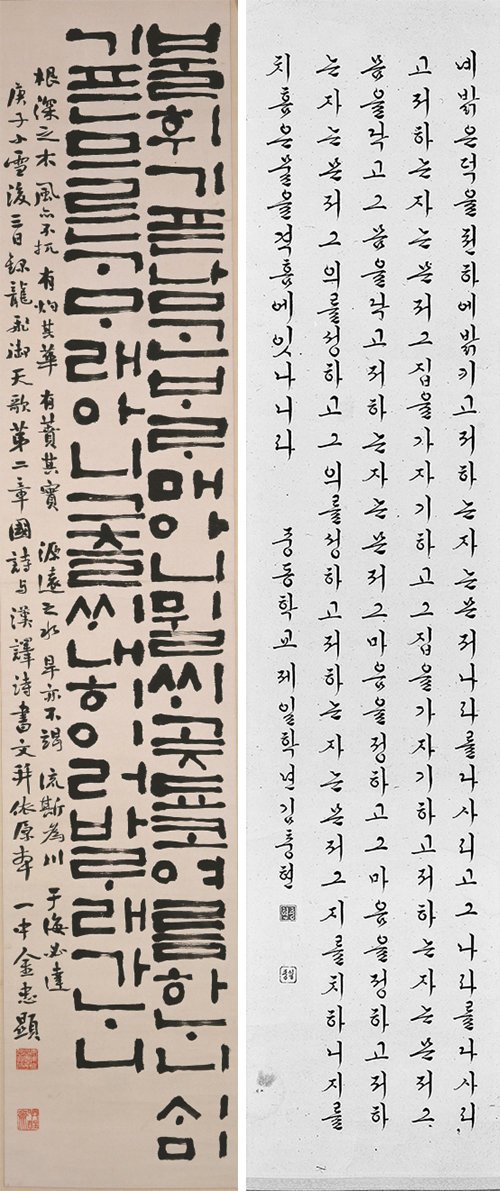 불휘기픈남ᄀᆞᆫᄇᆞᄅᆞ매아니뮐ᄊᆡ곶됴코여름하ᄂᆞ니ᄉᆡ미
기픈므른ᄀᆞᄆᆞ래아니그츨ᄊᆡ내히이러바ᄅᆞ래가ᄂᆞ니
根深之木 風亦不扤 有灼其華 有蕡其實 源遠之水 旱亦不竭 流斯為川 于海必達
庚子小雪後三日錄龍飛御天歌第二章國詩与漢譯詩書文幷依原本 一中金忠顯
녜밝은덕을텬하에밝키고져하는자는몬져나라를다사리고그나라를다사리
고져하는자는몬져그집을가자기하고그집을가자기하고져하는자는몬져그
몸을닥고그몸을닥고져하는자는몬져그마음을정하고그마음을정하고져하
는자는몬져그의를성하고그의를성하고져하는자는몬져그지를치하니지를
치홈은물을격홈에잇나니라 중동학교뎨일학년김충현